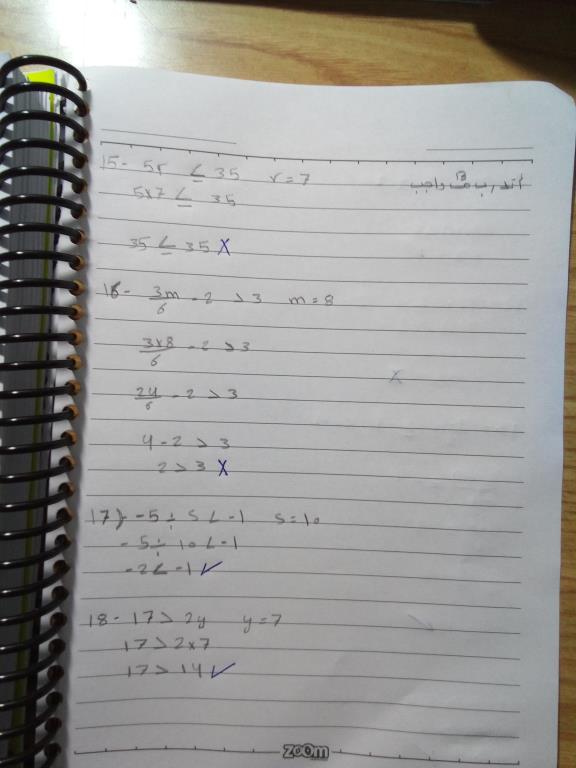 15- 5r ≤ 35 r=7
5x7 ≤ 35
35 ≤ 35 X
16- 3m/6 - 2 > 3 m=8
3x8/6 - 2 > 3
X
24/6 - 2 > 3
4 - 2 > 3
2 > 3 X
17} -5 ÷ s < -1 s=10
-5 ÷ 10 < -1
-2 < -1 ✓
18- 17 > 2y y=7
17 > 2x7
17 > 14 ✓
zoom